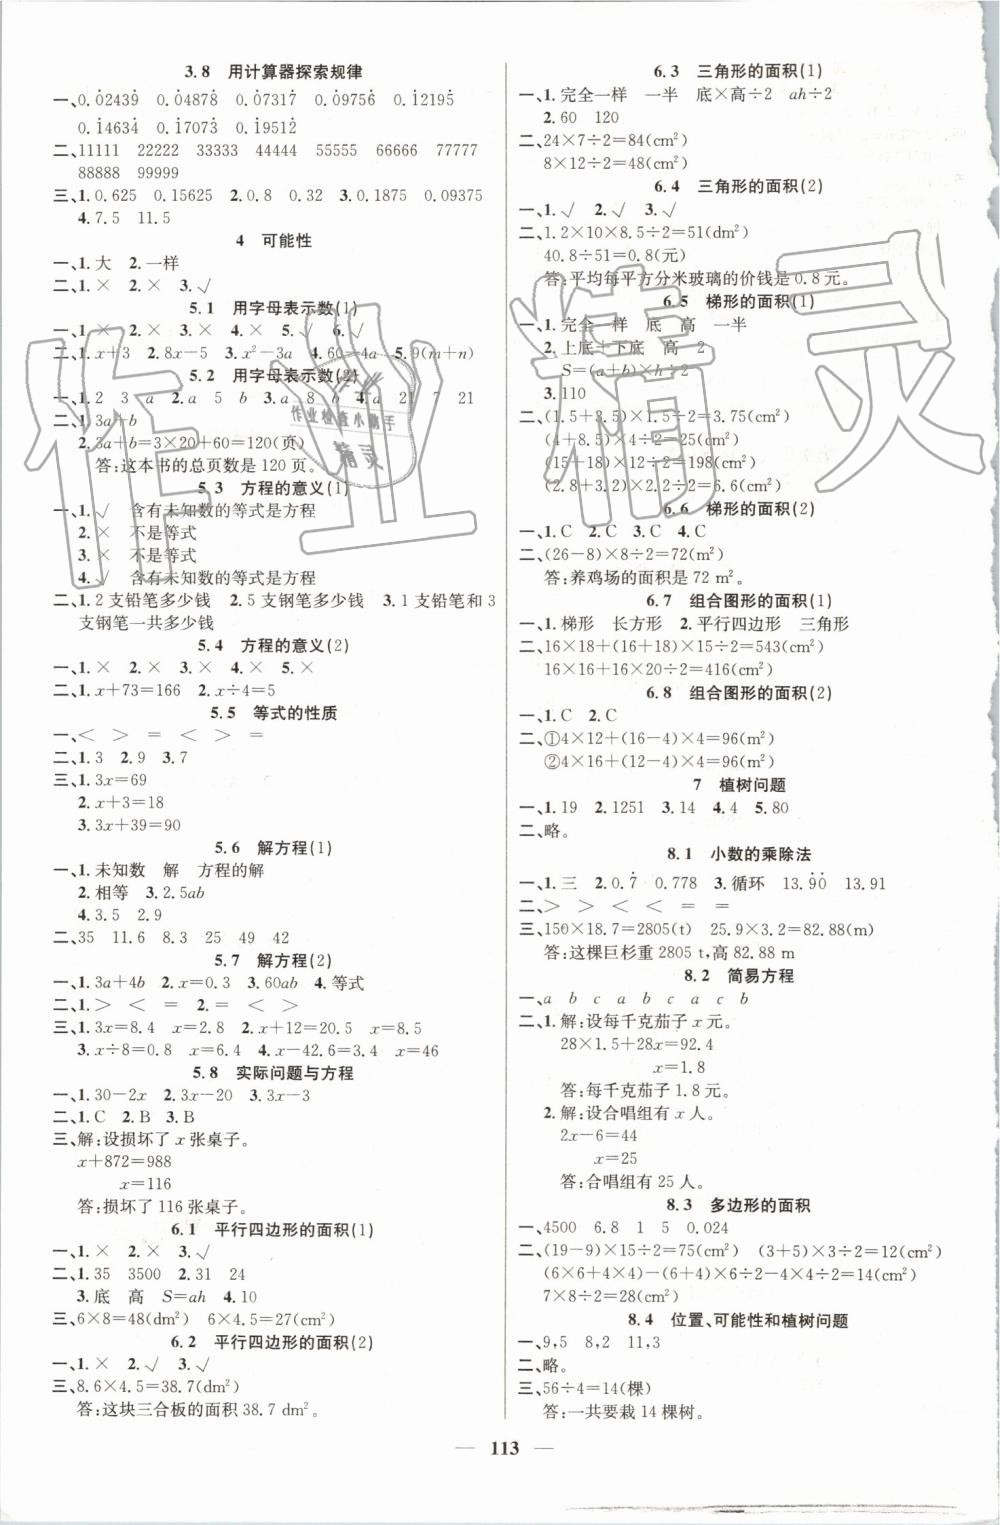 3.8 用计算器探索规律
一、0.0̇2439̇ 0.0̇4878̇ 0.0̇7317̇ 0.0̇9756̇ 0.1̇2195̇
0.1̇4634̇ 0.1̇7073̇ 0.1̇9512̇
二、11111 22222 33333 44444 55555 66666 77777
88888 99999
三、1.0.625 0.15625 2.0.8 0.32 3.0.1875 0.09375
4.7.5 11.5
4 可能性
一、1.大 2.一样
二、1.× 2.× 3.√
5.1 用字母表示数(1)
一、1.× 2.× 3.× 4.× 5.√ 6.√
二、1.x+3 2.8x-5 3.x²-3a 4.60-4a 5.9(m+n)
5.2 用字母表示数(2)
一、1.2 3 a 2.a 5 b 3.a 8 b 4.a 21 7 21
二、1.3a+b
2.3a+b=3×20+60=120(页)
答:这本书的总页数是 120 页。
5.3 方程的意义(1)
一、1.√ 含有未知数的等式是方程
2.× 不是等式
3.× 不是等式
4.√ 含有未知数的等式是方程
二、1.2支铅笔多少钱 2.5支钢笔多少钱 3.1支铅笔和3
支钢笔一共多少钱
5.4 方程的意义(2)
一、1.× 2.× 3.× 4.× 5.×
二、1.x+73=166 2.x÷4=5
5.5 等式的性质
一、< > = < > =
二、1.3 2.9 3.7
三、1.3x=69
2.x+3=18
3.3x+39=90
5.6 解方程(1)
一、1.未知数 解 方程的解
2.相等 3.2.5ab
4.3.5 2.9
二、35 11.6 8.3 25 49 42
5.7 解方程(2)
一、1.3a+4b 2.x=0.3 3.60ab 4.等式
二、1.> < = 2.= < >
三、1.3x=8.4 x=2.8 2.x+12=20.5 x=8.5
3.x÷8=0.8 x=6.4 4.x-42.6=3.4 x=46
5.8 实际问题与方程
一、1.30-2x 2.3x-20 3.3x-3
二、1.C 2.B 3.B
三、解:设损坏了 x 张桌子。
x+872=988
x=116
答:损坏了 116 张桌子。
6.1 平行四边形的面积(1)
一、1.× 2.× 3.√
二、1.35 3500 2.31 24
3.底 高 S=ah 4.10
三、6×8=48(dm²) 6×4.5=27(cm²)
6.2 平行四边形的面积(2)
一、1.× 2.√ 3.√
三、8.6×4.5=38.7(dm²)
答:这块三合板的面积 38.7 dm²。
6.3 三角形的面积(1)
一、1.完全一样 一半 底×高÷2 ah÷2
2.60 120
二、24×7÷2=84(cm²)
8×12÷2=48(cm²)
6.4 三角形的面积(2)
一、1.√ 2.√ 3.√
二、1.2×10×8.5÷2=51(dm²)
40.8÷51=0.8(元)
答:平均每平方分米玻璃的价钱是 0.8 元。
6.5 梯形的面积(1)
一、1.完全一样 底 高 一半
2.上底+下底 高 2
S=(a+b)×h÷2
3.110
二、(1.5+3.5)×1.5÷2=3.75(cm²)
(4+8.5)×4÷2=25(cm²)
(15+18)×12÷2=198(cm²)
(2.8+3.2)×2.2÷2=6.6(cm²)
6.6 梯形的面积(2)
一、1.C 2.C 3.C 4.C
二、(26-8)×8÷2=72(m²)
答:养鸡场的面积是 72 m²。
6.7 组合图形的面积(1)
一、1.梯形 长方形 2.平行四边形 三角形
二、16×18+(16+18)×15÷2=543(cm²)
16×16+16×20÷2=416(cm²)
6.8 组合图形的面积(2)
一、1.C 2.C
二、①4×12+(16-4)×4=96(m²)
②4×16+(12-4)×4=96(m²)
7 植树问题
一、1.19 2.1251 3.14 4.4 5.80
二、略。
8.1 小数的乘除法
一、1.三 2.0.7̇ 0.778 3.循环 13.9̇0̇ 13.91
二、> > < < = >
三、150×18.7=2805(t) 25.9×3.2=82.88(m)
答:这棵巨杉重 2805 t,高 82.88 m
8.2 简易方程
一、a b c a b c a c b
二、1.解:设每千克茄子 x 元。
28×1.5+28x=92.4
x=1.8
答:每千克茄子 1.8 元。
2.解:设合唱组有 x 人。
2x-6=44
x=25
答:合唱组有 25 人。
8.3 多边形的面积
一、4500 6.8 1 5 0.024
二、(19-9)×15÷2=75(cm²) (3+5)×3÷2=12(cm²)
(6×6+4×4)-(6+4)×6÷2-4×4÷2=14(cm²)
7×8÷2=28(cm²)
8.4 位置、可能性和植树问题
一、9,5 8,2 11,3
二、略。
三、56÷4=14(棵)
答:一共要栽 14 棵树。
113
作业精灵
作业检查小助手
精灵